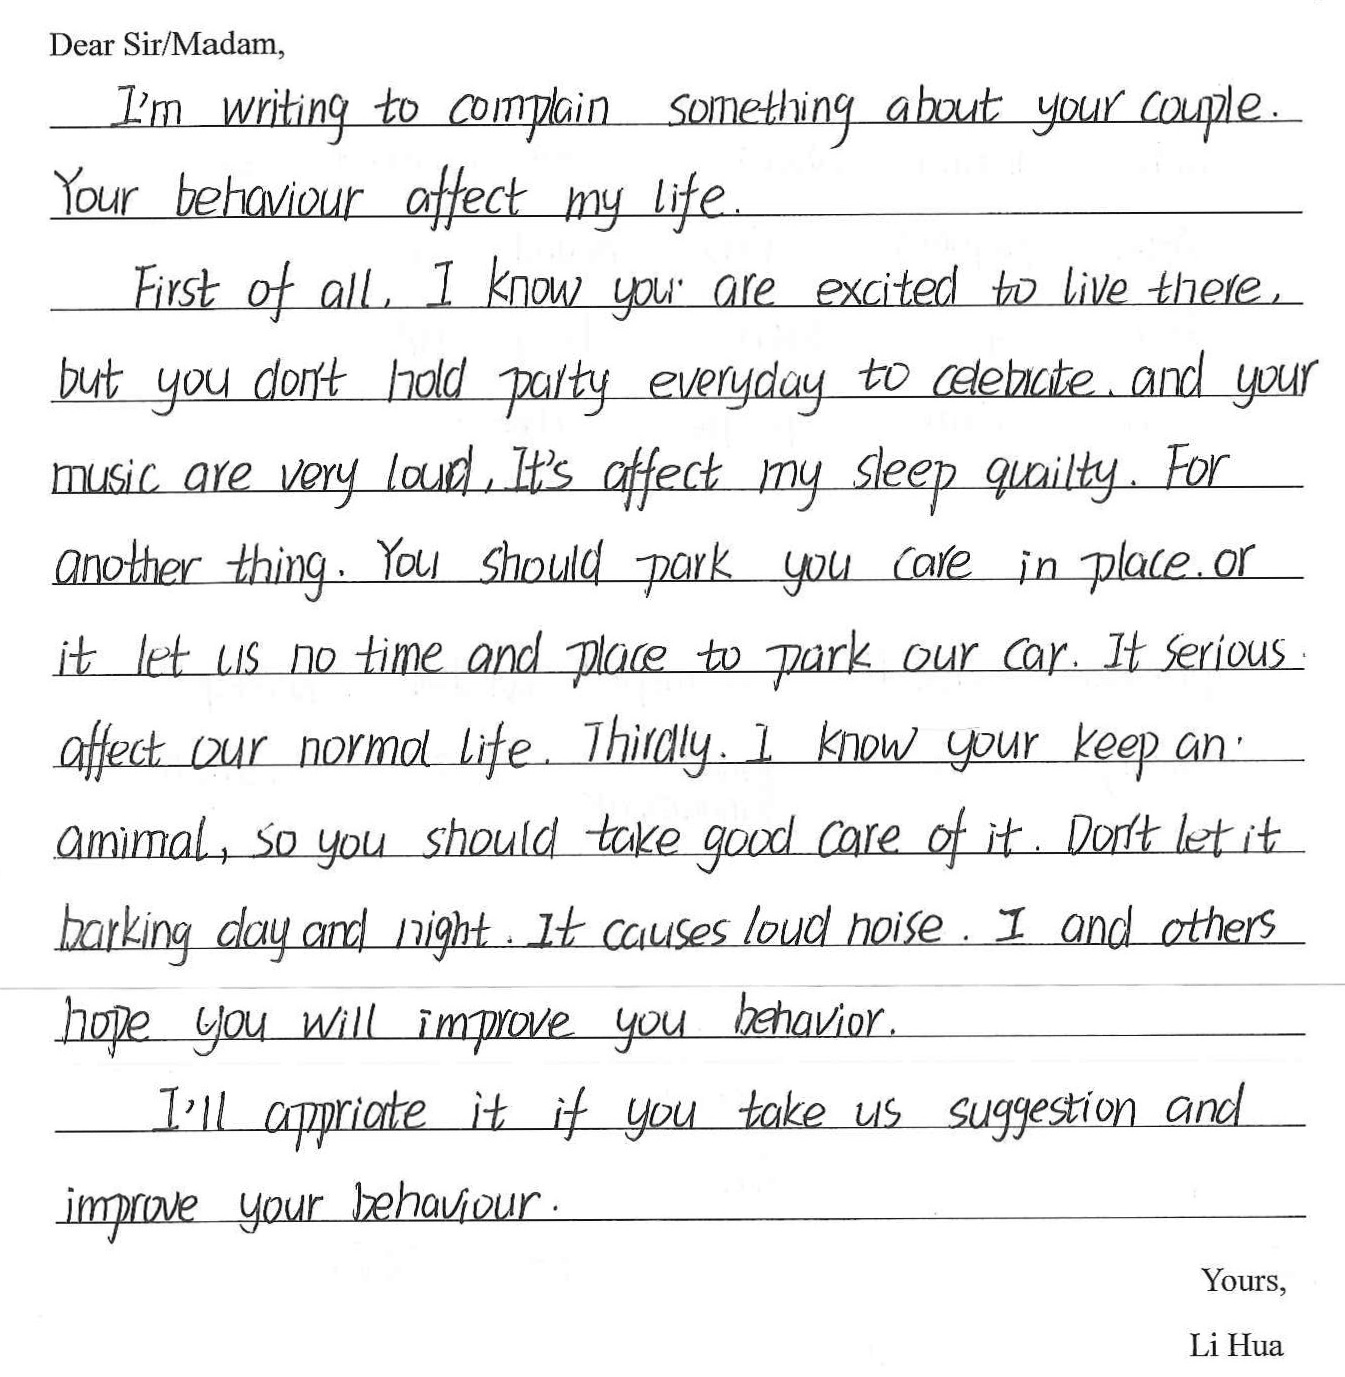 Dear Sir/Madam,
I'm writing to complain something about your couple.
Your behaviour affect my life.
First of all, I know you are excited to live there,
but you don't hold party everyday to celebrate. and your
music are very loud, It's affect my sleep quailty. For
another thing. You should park you care in place. or
it let us no time and place to park our car. It serious
affect our normal life. Thirdly. I know your keep an
amimal, so you should take good care of it. Don't let it
barking day and night. It causes loud noise. I and others
hope you will improve you behavior.
I'll appriate it if you take us suggestion and
improve your behaviour.
Yours,
Li Hua